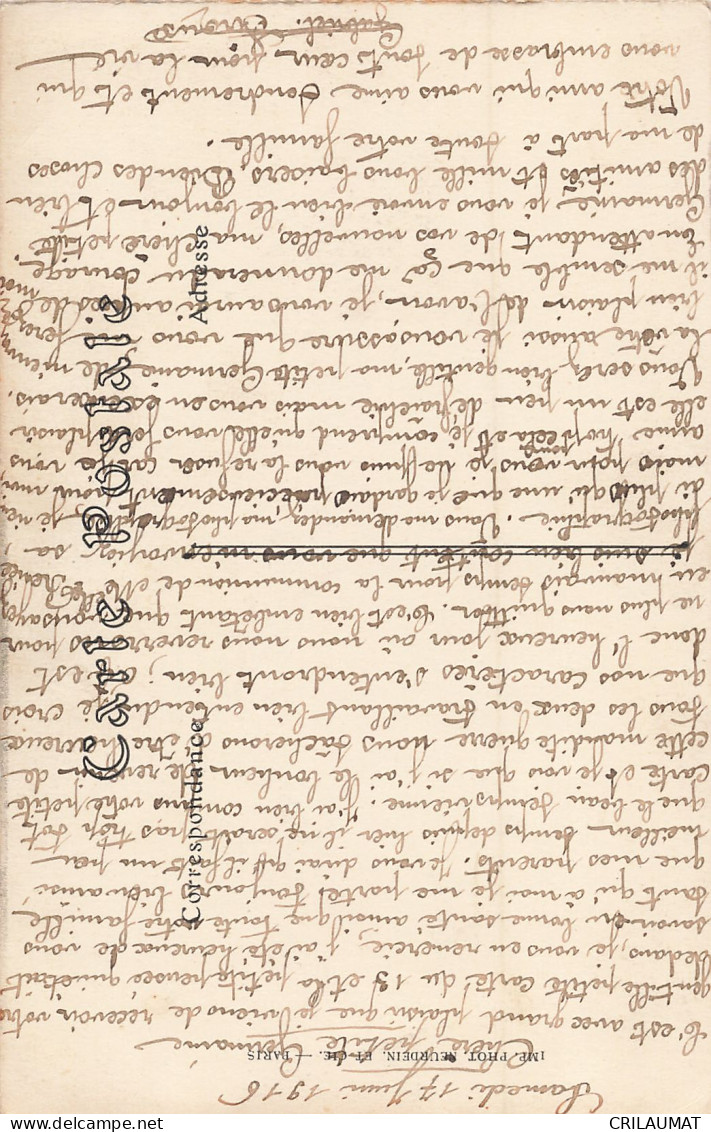 Samedi 17 Juin 1916
Chère petite Germaine
C'est avec grand plaisir que je viens de recevoir votre
gentille petite carte du 13 et la petite pensée qui était
dedans, je vous en remercie, j'ai été heureux de vous
savoir en bonne santé ainsi que toute votre famille
tant qu'à moi je me porte toujours bien ainsi
que mes parents. Je vous dirai qu'il fait un peu
meilleur temps depuis hier il ne serait pas trop tôt
que le beau temps vienne. J'ai bien reçu votre petite
carte et je vois que si j'ai le bonheur de revenir de
cette maudite guerre nous tâcherons d'être heureux
tous les deux en travaillant bien entendu, je crois
que nos caractères s'entendront bien; à est
donc l'heureux jour où nous nous reverrons pour
ne plus nous quitter. C'est bien embêtant que
en mauvais temps pour la communion de Melle
je suis bien content que vous m'envoyiez sa
photographie. Vous me demandez ma photographie je n'ai
plus qu'une que je gardais précieusement pour moi
mais pour vous je ne puis vous la refuser car je vous
aime trop pour cela et je comprend qu'elle vous fera plaisir
elle est un peu défraichie mais vous en
Vous serez bien gentille, ma petite Germaine de m'envoyer
la vôtre aussi je vous assure que vous me ferez
bien plaisir de l'avoir, je vous aurai près de moi
il me semble que ça me donnera du courage
En attendant de vos nouvelles, ma chère petite
Germaine je vous envoie bien le bonjour et bien
des amitiés et mille bons baisers. Bien des choses
de ma part à toute votre famille.
Votre ami qui vous aime tendrement et qui
vous embrasse de tout cœur pour la vie
Gabriel
Carte Postale
Correspondance
Adresse
IMP. PHOT. NEURDEIN ET CIE. — PARIS
CRILAUMAT